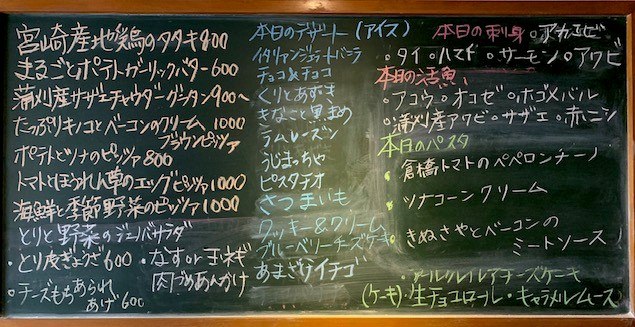 宮崎産地鶏のタタキ800
まるごとポテトガーリックバター600
蒲刈産サザエチャウダーグラタン900〜
たっぷりキノコとベーコンのクリーム 1000
ブラウンピッツァ
ポテトとツナのピッツァ 800
トマトとほうれん草のエッグピッツァ1000
海鮮と季節野菜のピッツァ1000
とりと野菜のジェノバサラダ
・とり皮ぎょうざ600 ・なす or 玉ネギ
肉づめあんかけ
・チーズもちあられ
あげ 600
本日のデザート (アイス)
イタリアンジェラートバニラ
チョコ&チョコ
くりとあずき
きなこと黒まめ
ラムレーズン
うじまっちゃ
ピスタチオ
さつまいも
クッキー&クリーム
ブルーベリーチーズケーキ
あまざけイチゴ
本日の刺身 ・アカエビ
・タイ ・ハマチ ・サーモン ・アワビ
本日の活魚
・アコウ ・オコゼ ・ホゴメバル
・蒲刈産アワビ ・サザエ ・赤ニシ
本日のパスタ
倉橋トマトのペペロンチーノ
ツナコーンクリーム
きぬさやとベーコンの
ミートソース
チーズケーキ
(ケーキ)・生チョコロール・キャラメルムース